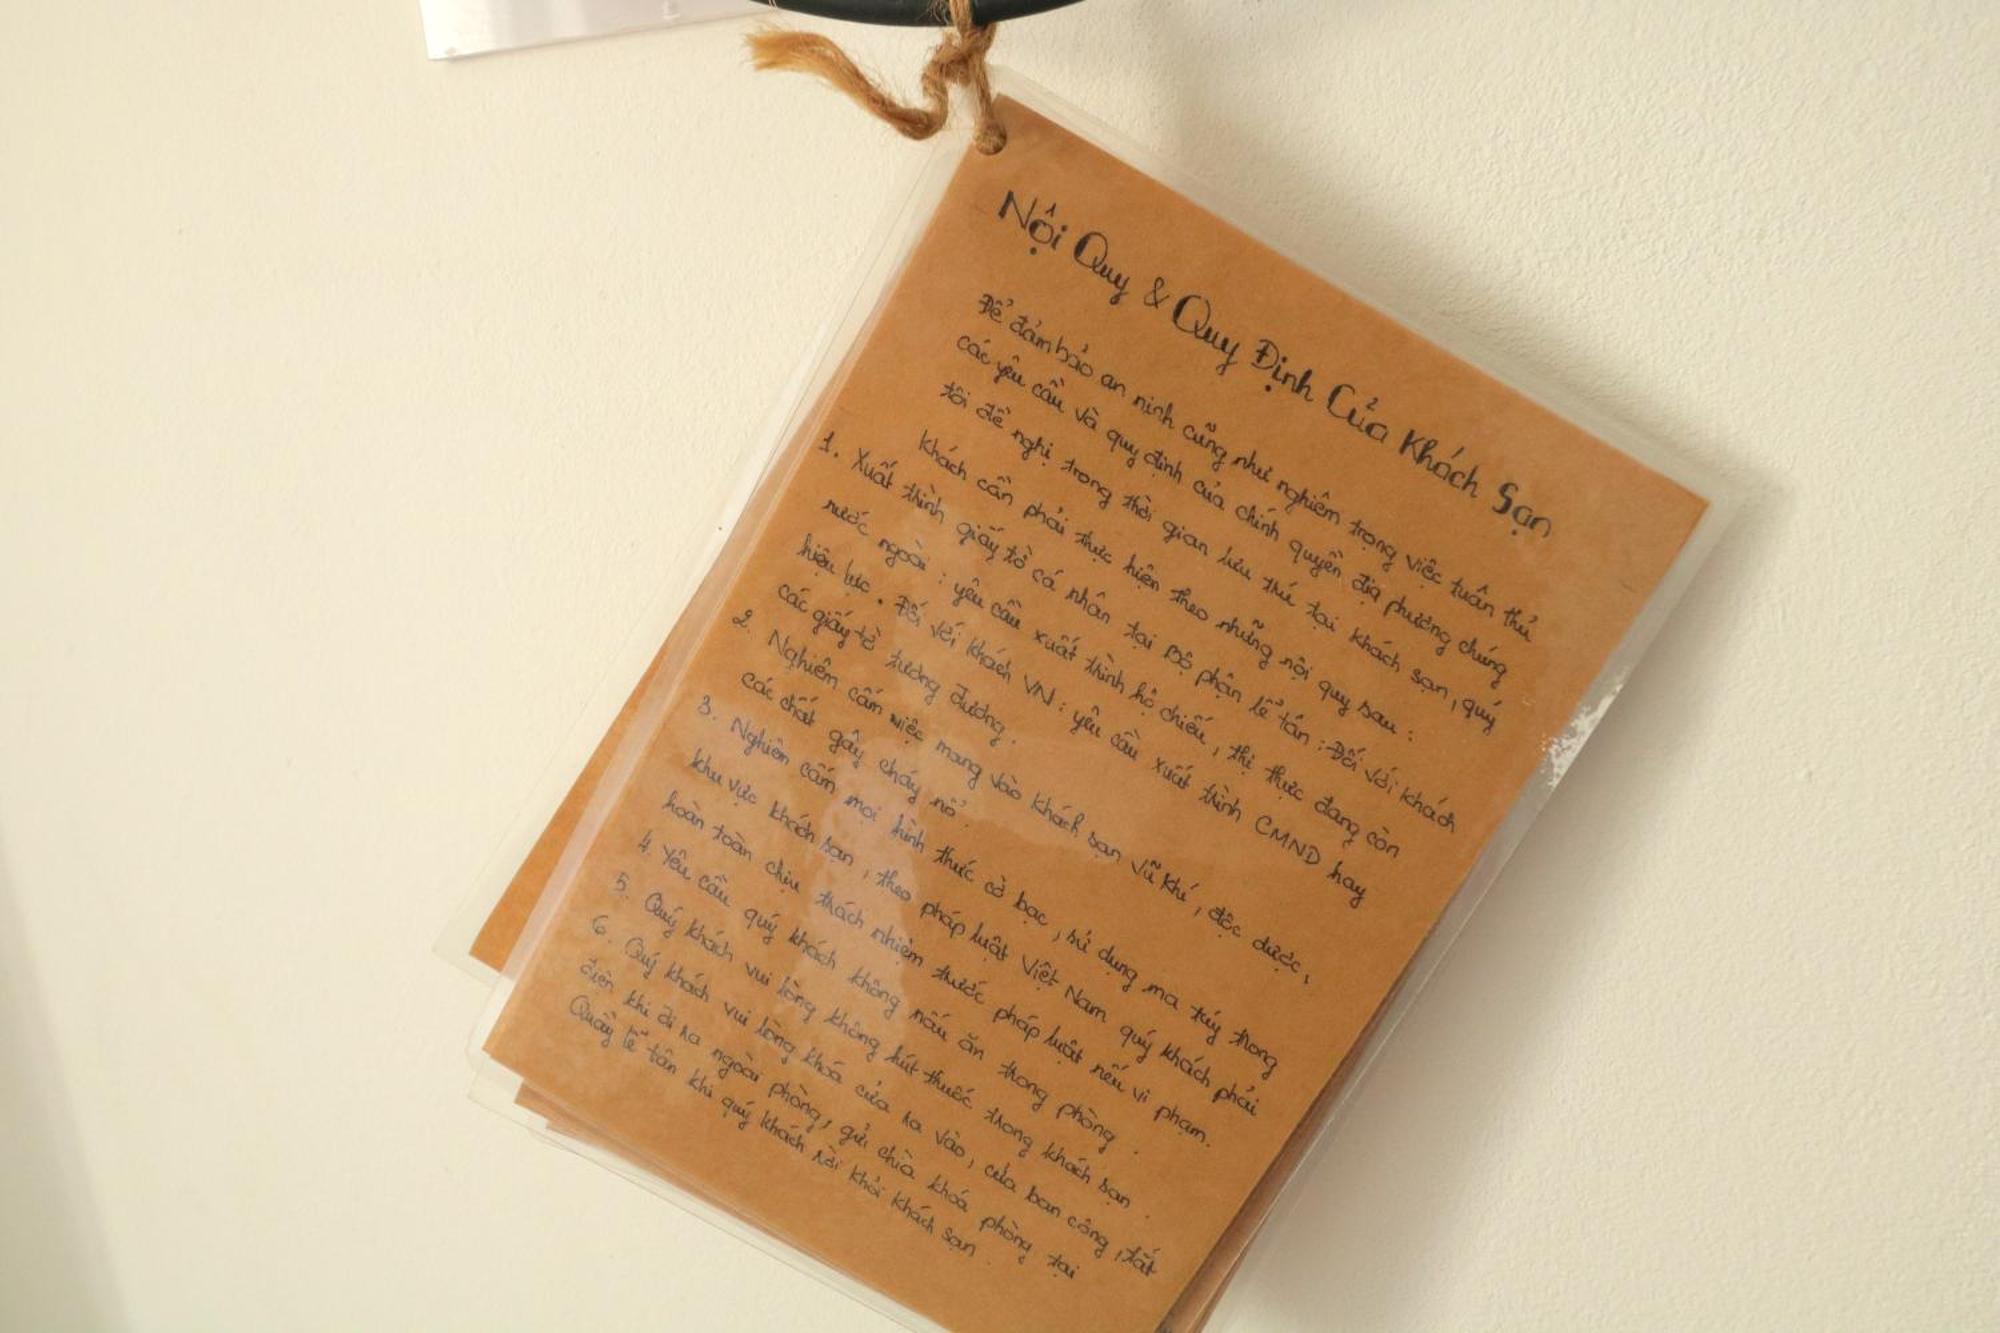 Nội Quy & Quy Định Của Khách Sạn
Để đảm bảo an ninh cũng như nghiêm trọng việc tuân thủ
các yêu cầu và quy định của chính quyền địa phương chúng
tôi đề nghị trong thời gian lưu trú tại khách sạn, quý
khách cần phải thực hiện theo những nội quy sau :
1. Xuất trình giấy tờ cá nhân tại Bộ phận lễ tán : Đối với khách
nước ngoài : yêu cầu xuất trình hộ chiếu, thị thực đang còn
hiệu lực. Đối với khách VN : yêu cầu xuất trình CMND hay
các giấy tờ tương đương.
2. Nghiêm cấm việc mang vào khách sạn vũ khí, độc dược,
các chất gây cháy nổ.
3. Nghiêm cấm mọi hình thức cờ bạc, sử dụng ma tuý trong
khu vực khách sạn, theo pháp luật Việt Nam quý khách phải
hoàn toàn chịu trách nhiệm trước pháp luật nếu vi phạm.
4. Yêu cầu quý khách không nấu ăn trong phòng.
5. Quý khách vui lòng không hút thuốc trong khách sạn.
6. Quý khách vui lòng khoá cửa ra vào, cửa ban công, tắt
điện khi đi ra ngoài phòng, gửi chìa khoá phòng tại
Quầy lễ tân khi quý khách rời khỏi khách sạn.